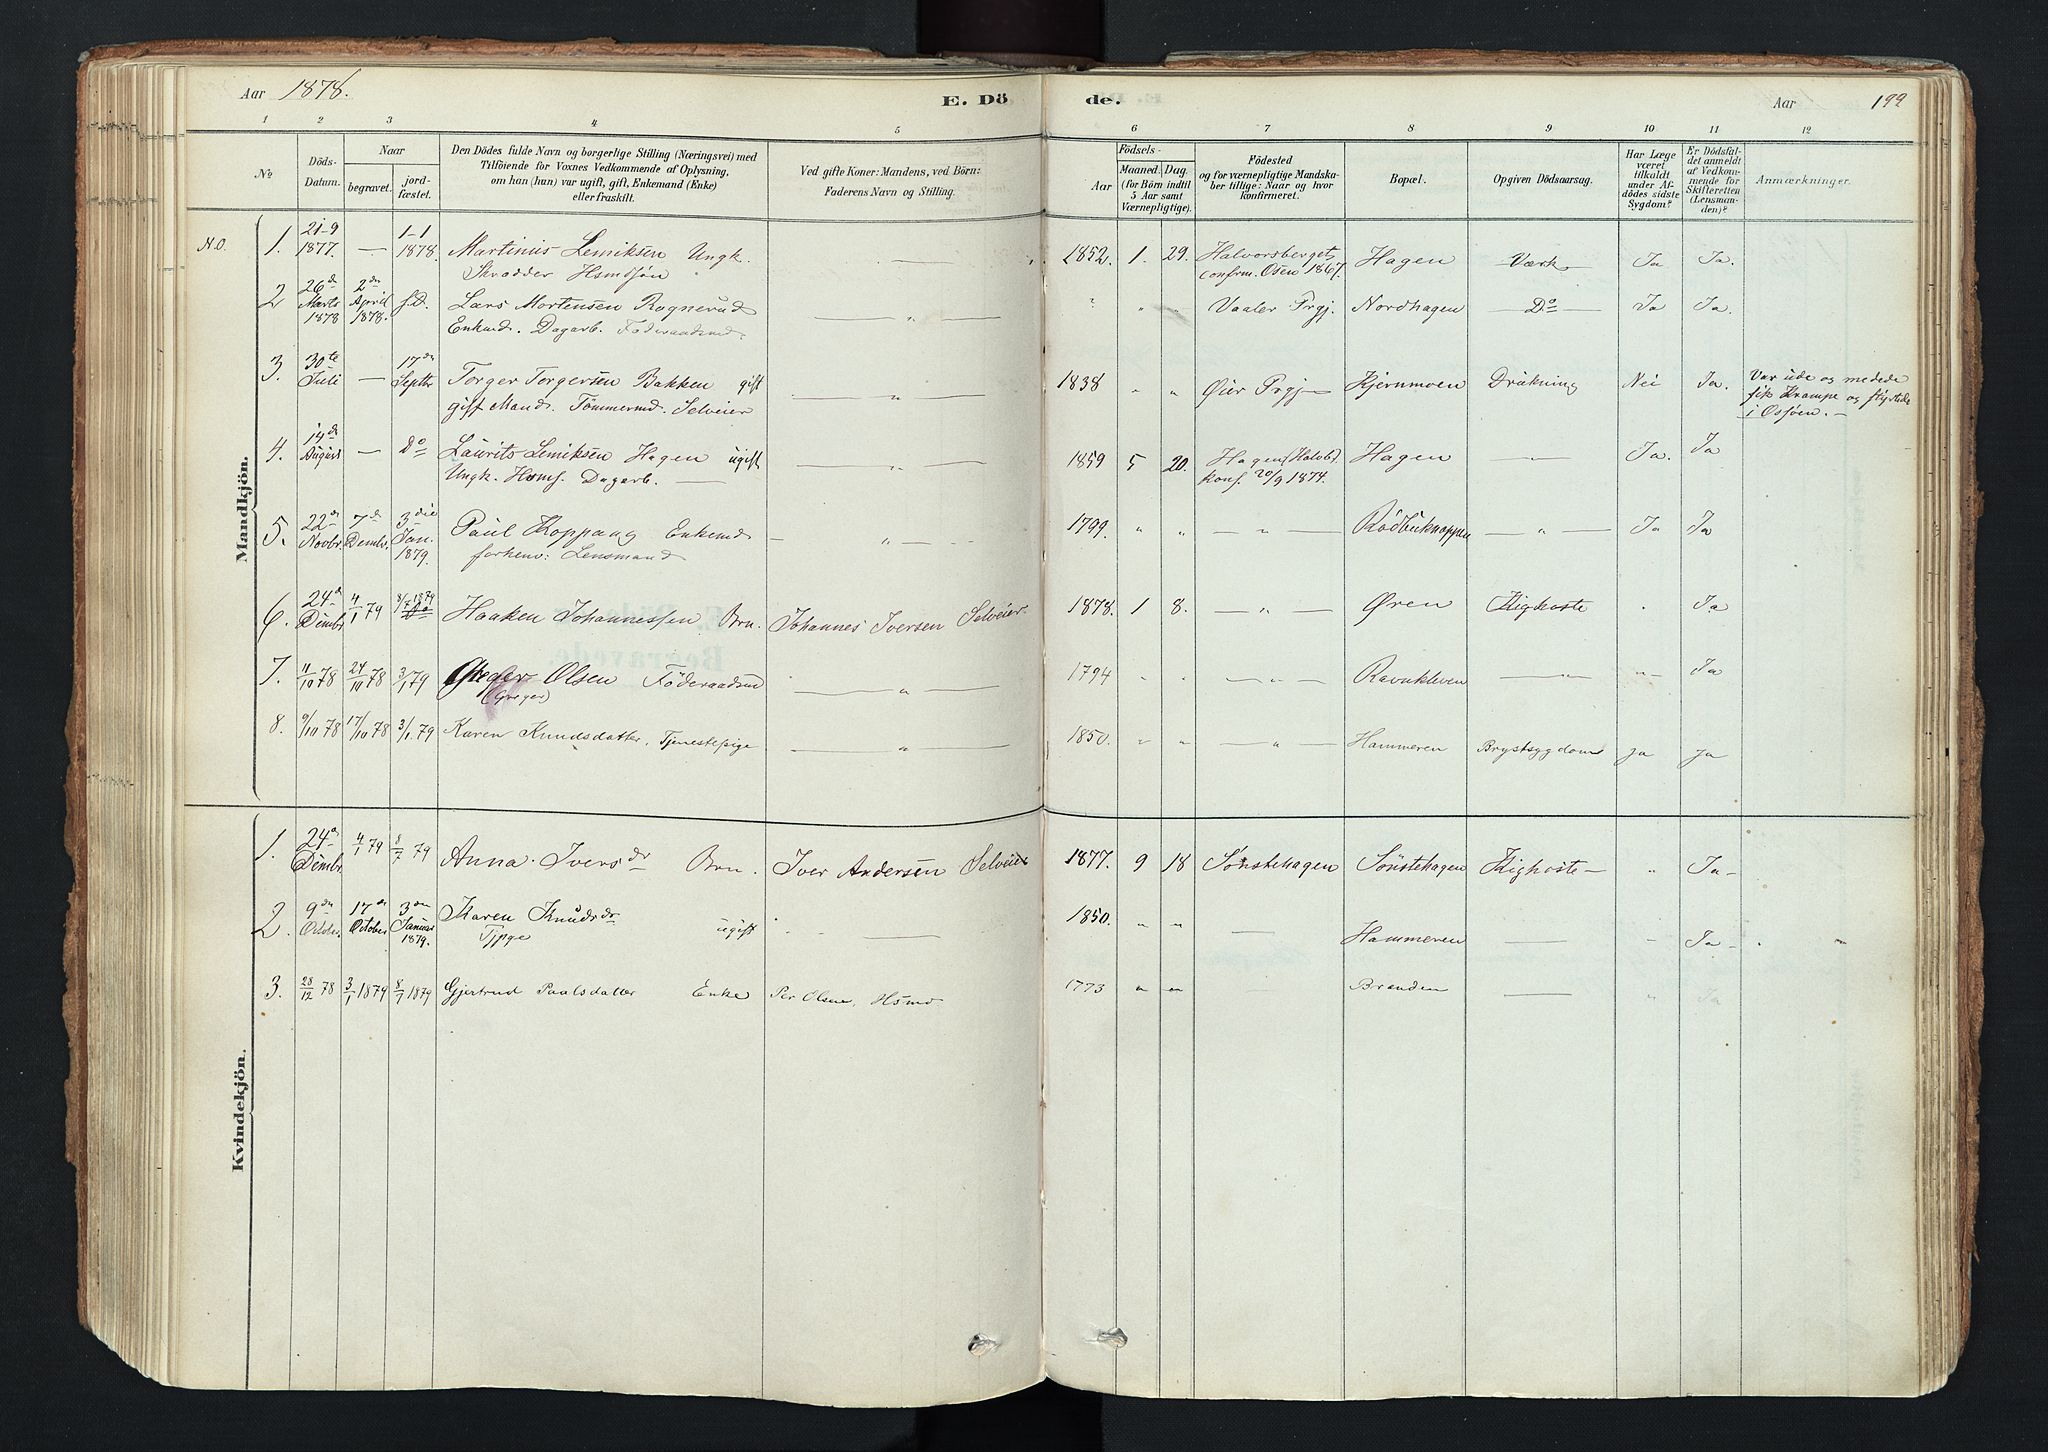 Aar 1878.
E. Döde.
Aar
199
1 2 3 4 5 6 7 8 9 10 11 12
No
Döds-Datum.
Naar
begravet.
jord-fæstet.
Den Dödes fulde Navn og borgerlige Stilling (Næringsvei) med
Tilföiende for Voxnes Vedkommende af Oplysning,
om han (hun) var ugift, gift, Enkemand (Enke)
eller fraskilt.
Ved gifte Koner: Mandens, ved Börn:
Faderens Navn og Stilling.
Födsels-
Aar
Maaned. Dag.
(for Börn indtil
5 Aar samt
Værnepligtige).
Födested
og for værnepligtige Mandska-
ber tillige: Naar og hvor
konfirmeret.
Bopæl.
Opgiven Dödsaarsag.
Har Læge
været
tilkaldt
under Af-
dödes sidste
Sygdom?
Er Dödsfal-
det anmeldt
af Vedkom-
mende for
Skifteretten
(Lensman-
den)?
Anmærkninger.
Mandkjön.
N.O. 1. 21-9 1877. — 1-1 1878. Martinus Lemiksen Ungk. — " — 1852. 1. 29. Halvorsberget Hagen Værk Ja Ja.
confirm. Osen 1867.
2 26de Marts 1878 2den April 1878. s.D. Lars Mortensen Rognerud — " — " " Vaaler Prgj. Nordhagen — Do — Ja Ja.
Enkmd. Dagarb. Föderaadsmd.
3. 30te Juli — 17de Septbr Torger Torgersen Bakken gift — " — 1838 " " Øier Prgj — Kjernmoen Drukning Nei Ja. Var ude og medede
gift Mand. Tömmermd. Selveier fik Krampe og styrtede
i Ossöen. —
4. 14de August — Do Laurits Lemiksen Hagen ugift — " — 1859 5 20. Hagen (Halvb). Hagen — " — Ja. Ja
Ungk. Hsmf. Dagarb. — konf. 20/9 1874.
5. 22de Novbr. 7de Dembr. 3die Jan. 1879. Paul Koppang Enkemd — " — 1799. " " — " — Rödbuknappen — " — Ja Ja
forhenv: Lensmand
6. 24de Dembr 4/1 79 8/7 1879 Do Haaken Johannessen Brn. Johannes Iversen Selveier. 1878. 1 8. — " — Øren Kighoste . Ja
7. 11/10 78 24/10 78 3/1 79 Greger Olsen Föderaadsmd — " — 1794 — " — Ravnkleven — " — " Ja
(Greger)
8. 9/10 78 17/10 78 3/1. 79 Karen Knudsdatter, Tjenestepige — " — 1850. " " — " — Hammeren Brystsygdom ja ja
Kvindekjön.
1. 24de Dembr. 4/1 79 8/7 79 Anna Iversdr Brn. Iver Andersen Selveier 1877. 9 18 Sönstehagen Sönstehagen Kighoste — " Ja —
2. 9de October. 17de October 3die Januar 1879. Karen Knudsdr ugift — 1850. " " — Hammeren — " Ja —
Tjpge
3. 28/12 78 3/1 1879 8/7 1879 Gjertrud Paalsdatter Enke Per Olsen, Hsmd 1773 " " — Branden — " Ja